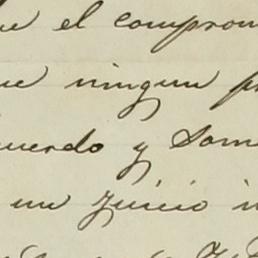 que el comprom
que ningun p
cuerdo y som
un juicio i